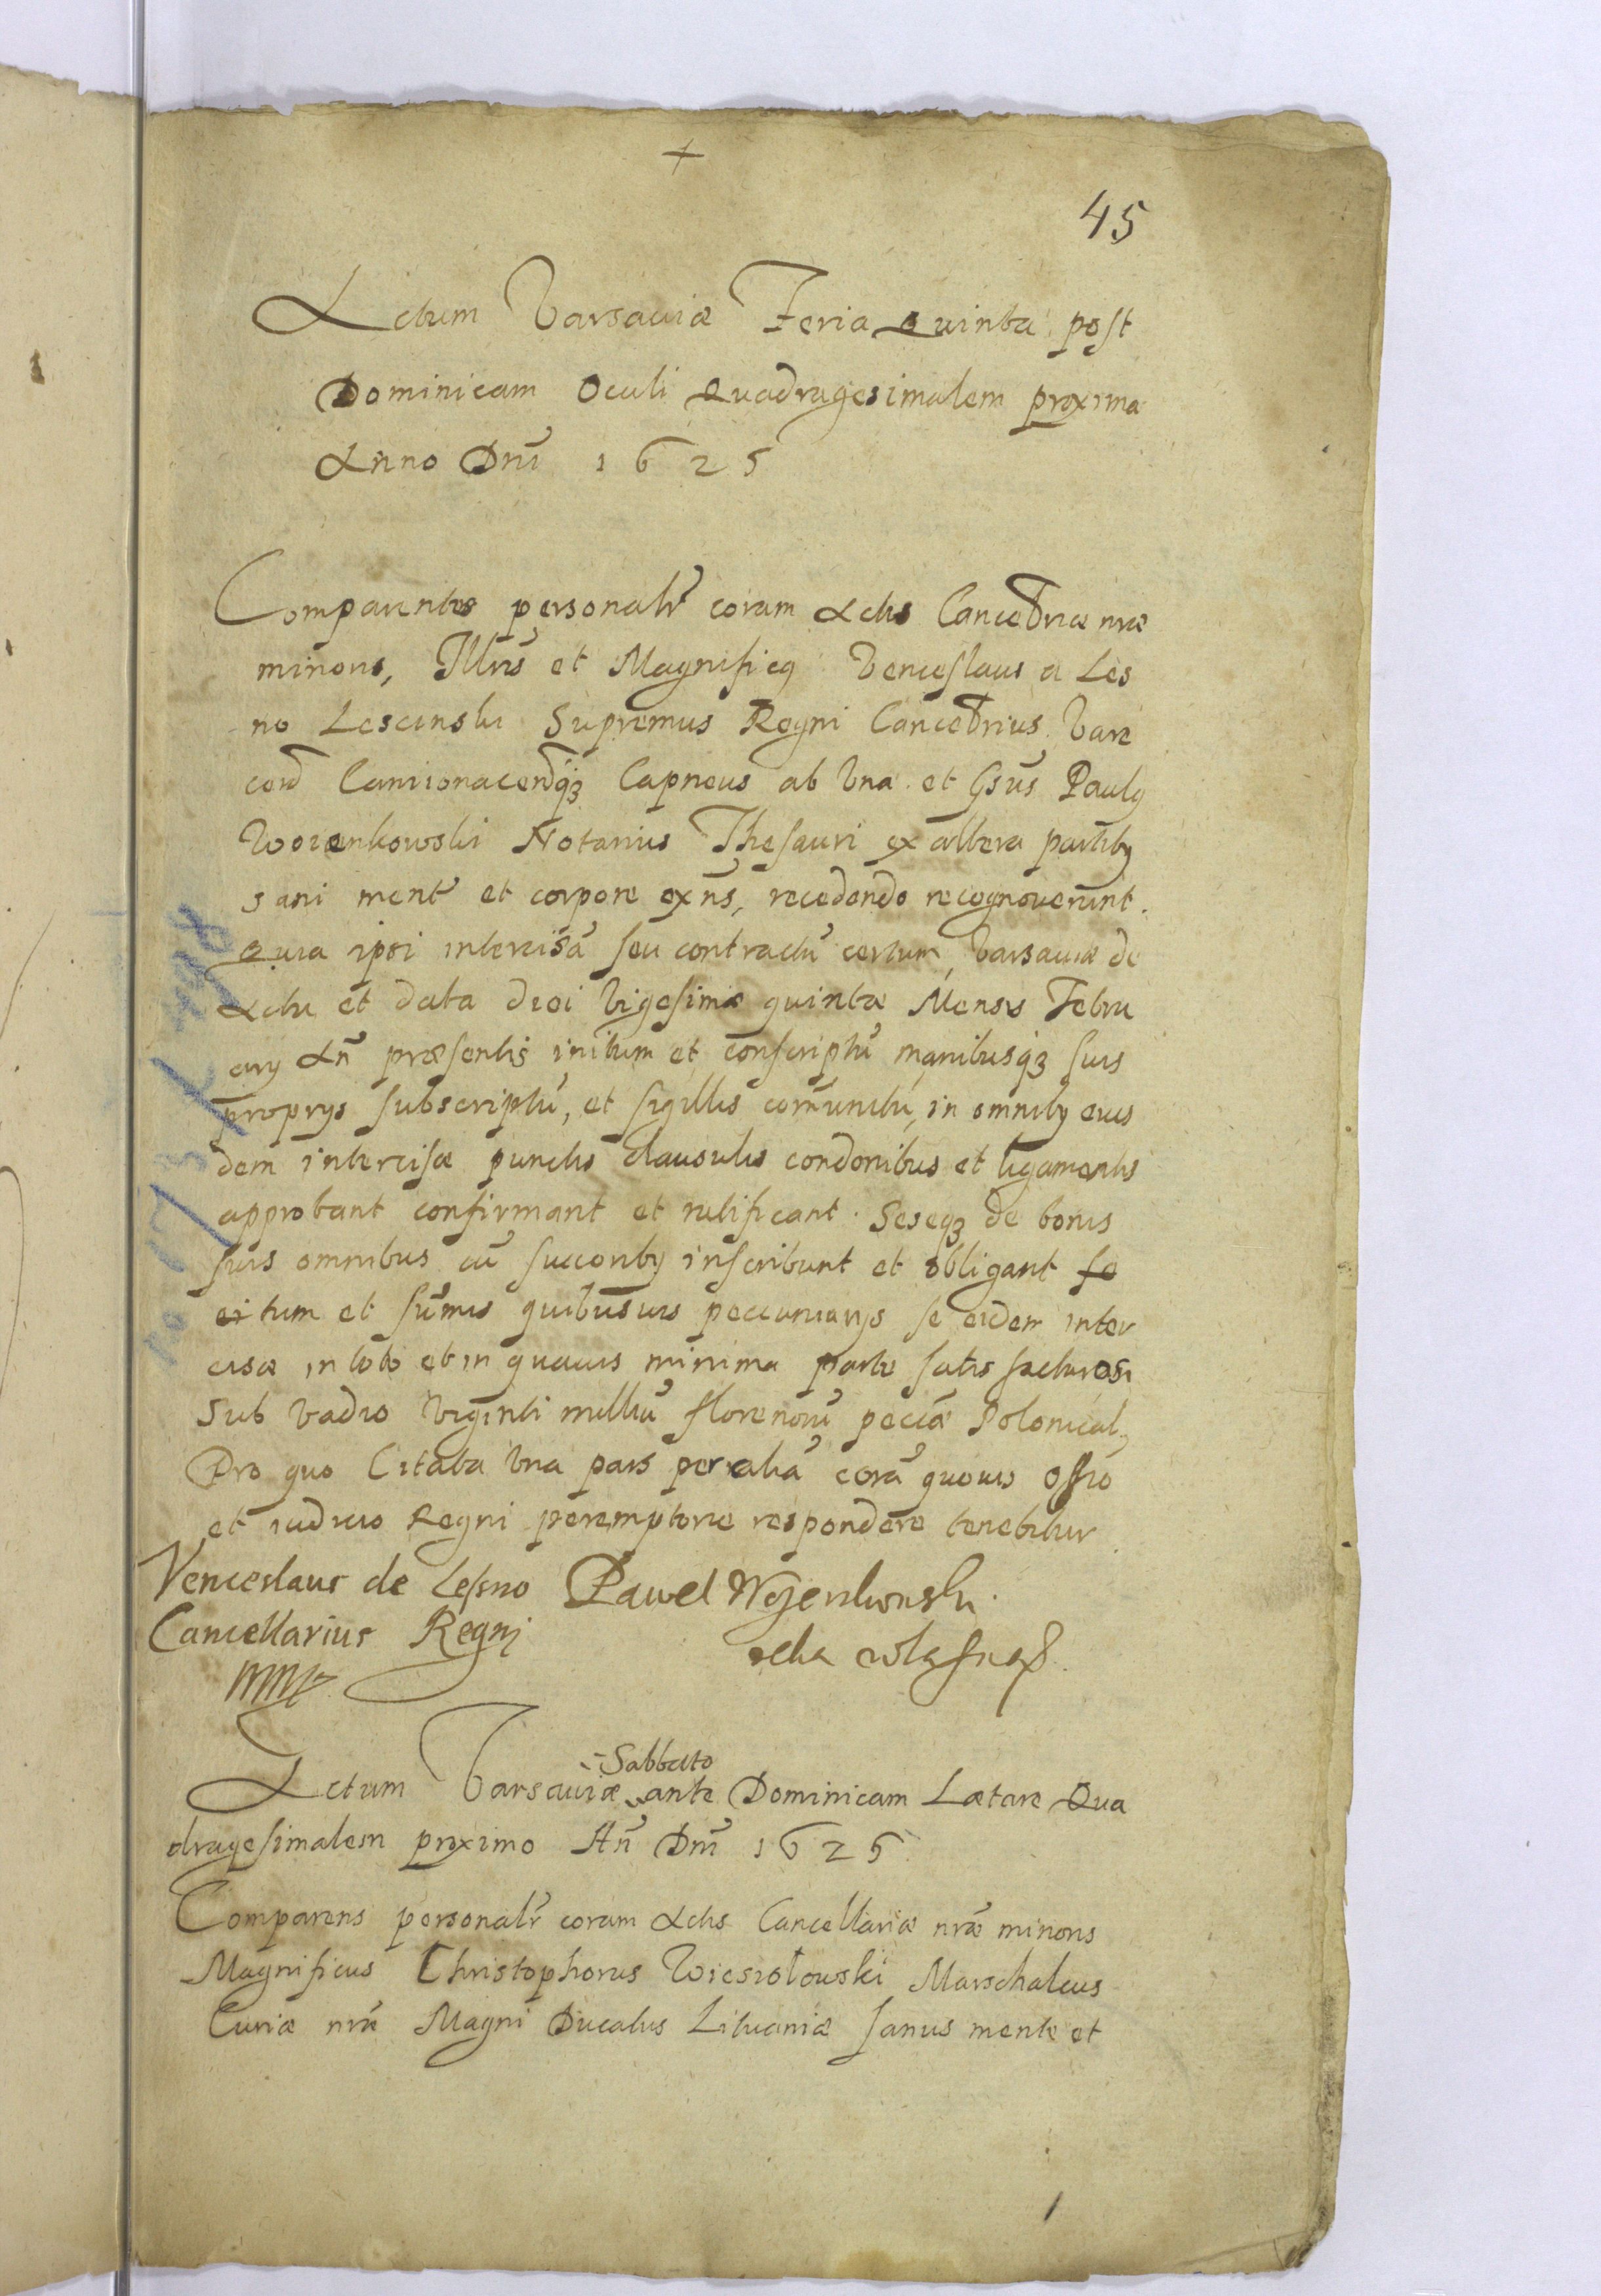 45
Actum Varsaviæ Feria Quinta post
Dominicam Oculi Quadragesimalem proxima
Anno Dnī 1625
Comparentes personalr̄ coram Actis Cancellriæ nræ
minoris, Illrīs et Magnificq Venceslaus a Les
no Lescinski Supremus Regni Cancellrius Vare
cen̄ Camionacen̄q3 Capneus ab Vna et Gsūs Paulq
Notarius Thesauri ex altera partibq
sani ment̄ et corpore exn̄s, recedendo recognoverunt.
Quia ipsi intercisā seu contractū certum, Varsaviæ de
Actu et data diei Vigesimæ quintæ Mensis Febru
arij An̄ præsentis initum et conscriptū manibusq3 suis
proprijs subscriptū, et sigillis com̄unitū, in omnibq eius
dem intercisæ punctis clausulis condōnibus et ligamentis
approbant confirmant et ratificant. Seseq3 de bonis
suis omnibus cū succonbq inscribunt et obligant
tum et sūmis quibusuis pecuniarijs se eidem inter
cisæ in toto et in quauis minima parte satis facturos
Sub Vadio Viginti milliū florenorū peciæ Polonical
Pro quo Citata Vna pars per aliā corā quouis offio
et iudicio Regni peremptorie respondere tenebitur
Venceslaus de Lesno Pawel
Cancellarius Regni
mp
Sabbato
Actum Varsaviæ ante Dominicam Lætare Qua
dragesimalem proximo An̄ Dnī 1625
Comparens personalr̄ coram Actis Cancellariæ nræ minoris
Magnificus Christophorus Wiesiołowski Marschalcus
Curiæ nræ Magni Ducatus Lituaniæ sanus mente et